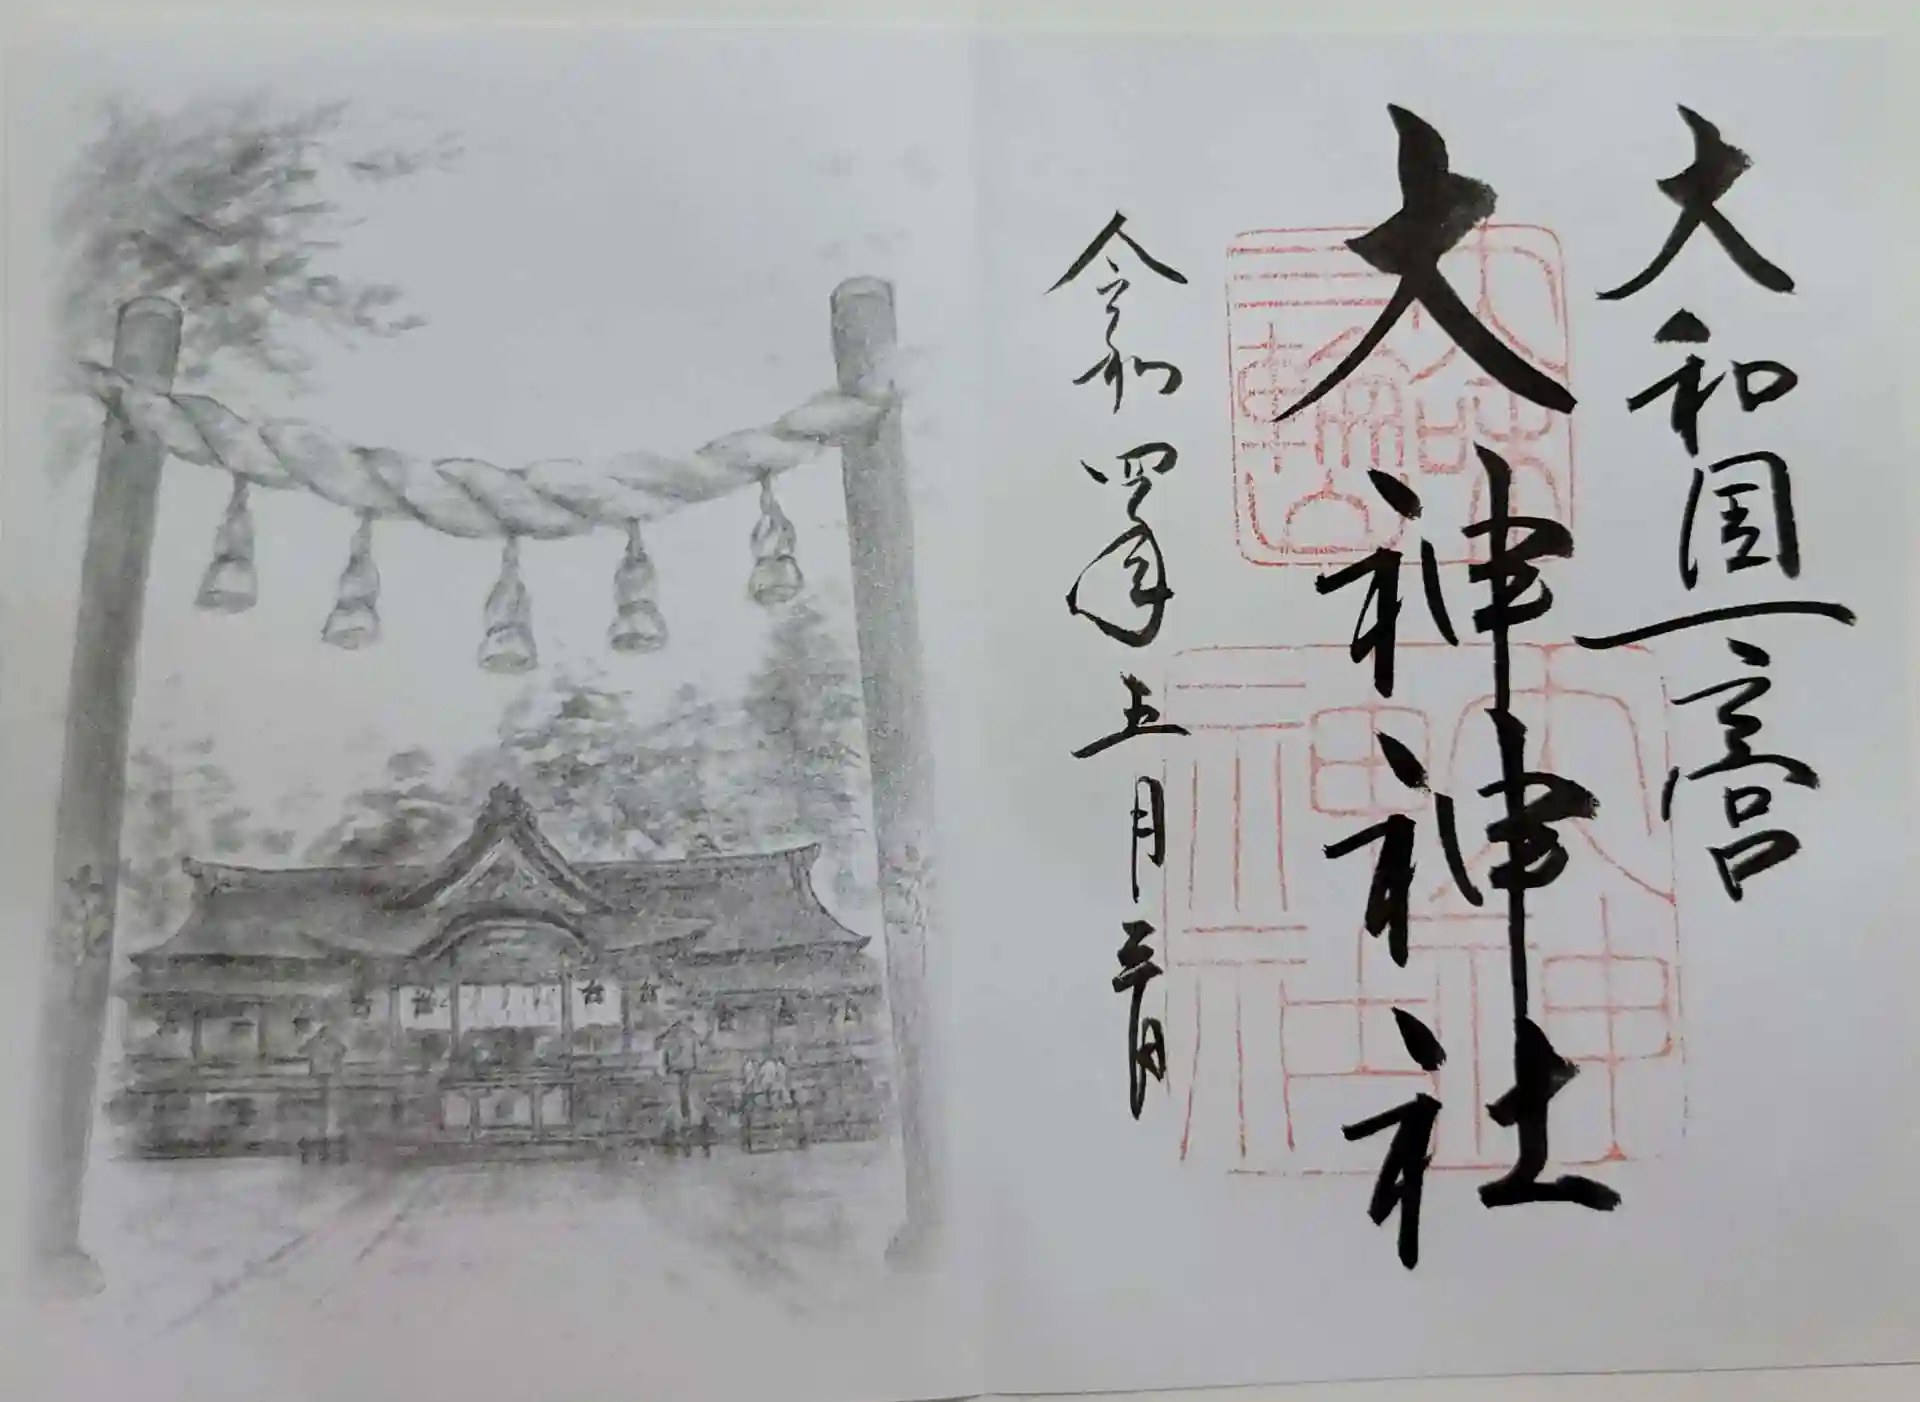 大和国一宮
大神神社
大神神社
令和四年五月三日